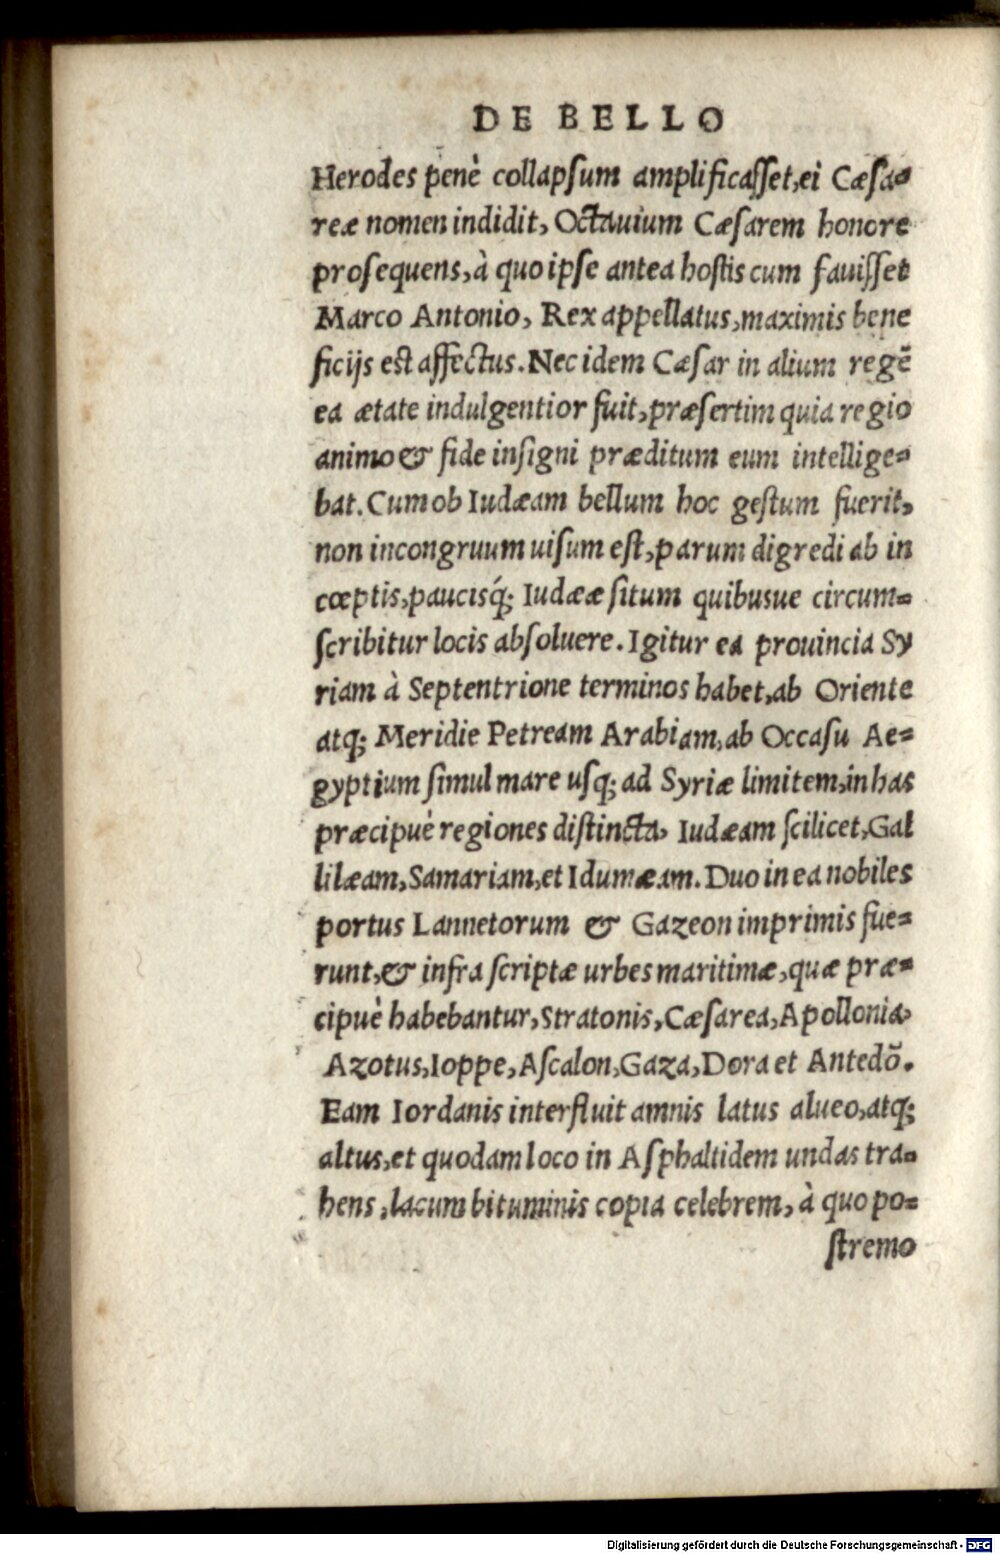 DE BELLO
Herodes penè collapsum amplificasset, ei Cæsa-
reæ nomen indidit, Octauium Cæsarem honore
prosequens, à quo ipse antea hostis cum fauisset
Marco Antonio, Rex appellatus, maximis bene
ficijs est affectus. Nec idem Cæsar in alium regē
ea ætate indulgentior fuit, præsertim quia regio
animo & fide insigni præditum eum intellige-
bat. Cum ob Iudæam bellum hoc gestum fuerit,
non incongruum uisum est, parum digredi ab in
cœptis, paucisq́; Iudææ situm quibusue circum-
scribitur locis absoluere. Igitur ea prouincia Sy
riam à Septentrione terminos habet, ab Oriente
atq; Meridie Petream Arabiam, ab Occasu Ae-
gyptium simul mare usq; ad Syriæ limitem, in has
præcipuè regiones distincta, Iudæam scilicet, Gal
lilæam, Samariam, et Idumæam. Duo in ea nobiles
portus Lannetorum & Gazeon imprimis fue-
runt, & infra scriptæ urbes maritimæ, quæ præ-
cipuè habebantur, Stratonis, Cæsarea, Apollonia,
Azotus, Ioppe, Ascalon, Gaza, Dora et Antedō.
Eam Iordanis interfluit amnis latus alueo, atq;
altus, et quodam loco in Asphaltidem undas tra-
hens, lacum bituminis copia celebrem, à quo po-
stremo
Digitalisierung gefördert durch die Deutsche Forschungsgemeinschaft - DFG